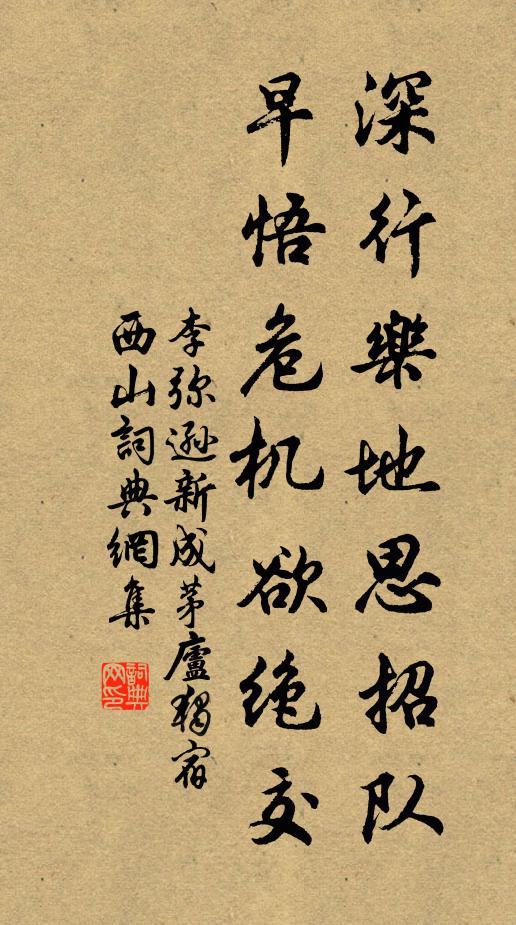 深行樂地思招队
早悟危机欲绝交
李弥遜新成茅廬獨宿
西山詞典網集
詞典网印